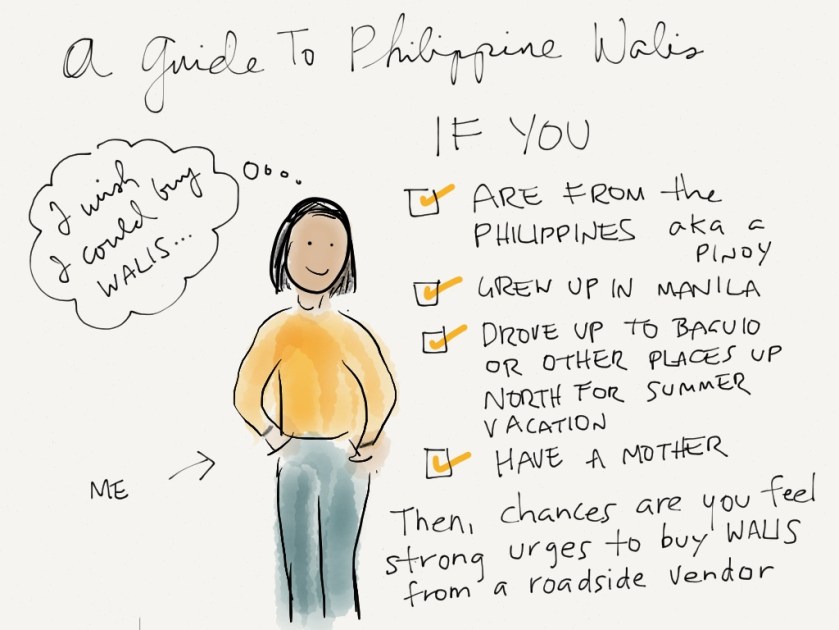 A Guide To Philippine Walis
I wish
I could buy
WALIS...
ME
IF YOU
ARE FROM the
PHILIPPINES aka a
PINOY
GREW UP IN MANILA
DROVE UP TO BAGUIO
OR OTHER PLACES UP
NORTH FOR SUMMER
VACATION
HAVE A MOTHER
Then, chances are you feel
strong urges to buy WALIS
from a roadside vendor